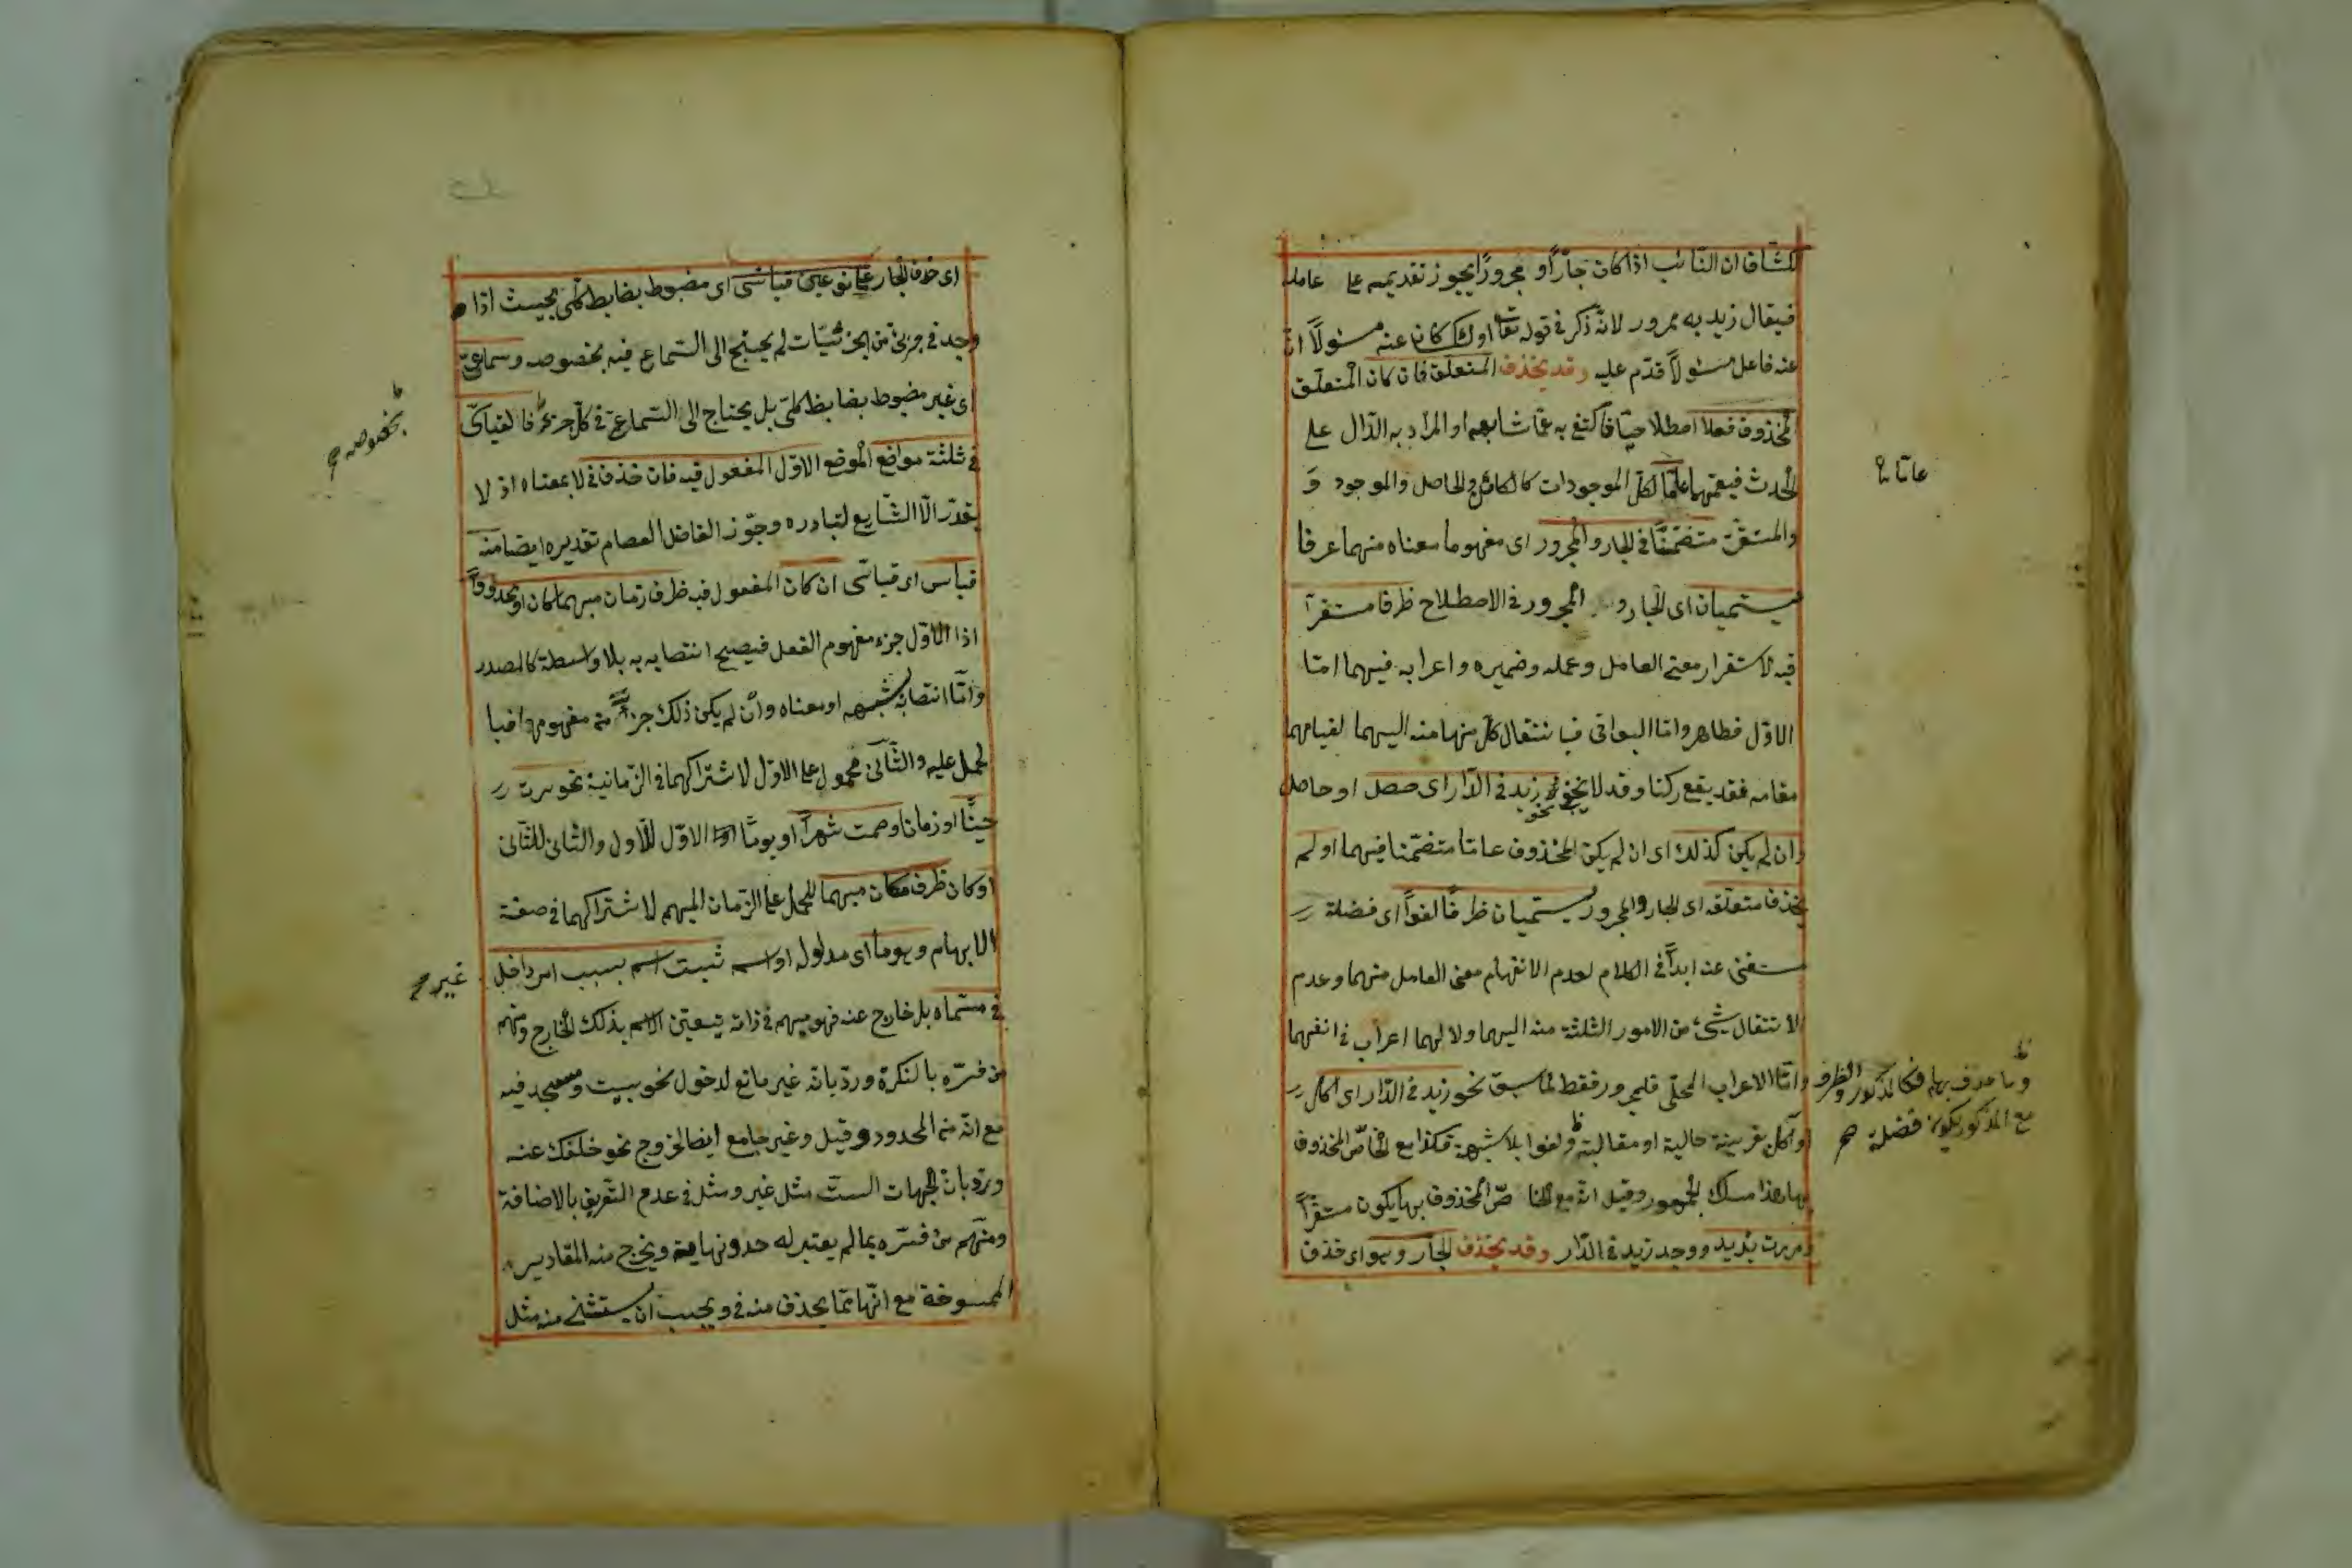 لكشاف ان النائب اذا كان جارّا و مجرورًا يجوز تقديمه على عامله
فيقال زيد به ممرور لانه ذكر في قوله تعا اولئك كان عنه مسئولاً ان
عنه فاعل مسئولاً قدّم عليه وقد يحذف المتعلق فان كان المتعلّق
المحذوف فعلا اصطلاحيّا فاكتفى به عمّا شابهه او المراد به الدّال على
الحدث فيعمّهما عامّا لكلّ الموجودات كالكائن والحاصل والموجود و
والمستقرّ متضمّنًا في الجار والمجرور اى مفهوما معناه منهما عرفا
يسمّيان اى الجار و المجرور في الاصطلاح ظرفا مستقرّاً
فيه لاستقرار معنى العامل وعمله وضميره واعرابه فيهما امّا
الاوّل فظاهر وامّا البواقى فبانتقال كلّ منها منه اليهما لقيامهما
مقامه فقد يقع ركنا وقد لا نحو زيد في الدّار اى حصل او حاصل
وان لم يكن كذلك اى ان لم يكن المحذوف عامّا متضمّنا فيهما او لم
يحذف متعلّقه اى الجار والمجرور يسمّيان ظرفًا لغواً اى فضلة
يستغنى عنه ابداً في الكلام لعدم الانفهام معنى العامل منهما وعدم
الانتقال شئ من الامور الثلثة منه اليهما ولا لهما اعراب في انفسهما
وامّا الاعراب المحلّى فللمجرور فقط لما سبق نحو زيد في الدّار اى اكل
او آكل بقرينة حالية او مقالية ولغوا بلا شبهة فكذا مع الخاصّ المحذوف
بها هذا مسلك الجمهور وقيل انه مع الخاصّ المحذوف بها يكون مستقرّاً
ومررت بزيد ووجد زيد في الدّار وقد يحذف الجار وهو اى حذف
عامّا
وما حذف بها فكالمذكور والظرف
مع المذكور يكون فضلة صح
اى حذف الجار على نوعين قياسى اى مضبوط بضابط كلّى بحيث اذا
وجد في جزئى من الجزئيّات لم يحتج الى السّماع فيه بخصوصه وسماعىّ
اى غير مضبوط بضابط كلّى بل يحتاج الى السّماع في كلّ جزئى فالقياسىّ
في ثلثة مواضع الموضع الاوّل المفعول فيه فان حذف في لا بمعناه اذ لا
يقدّر الّا الشّايع لتبادره وجوّز الفاضل العصام تقديره ايضا منه
قياس اى قياسى ان كان المفعول فيه ظرف زمان مبهما كان او محدودًا
اذ الاوّل جزء مفهوم الفعل فيصح انتصابه به بلا واسطة كالمصدر
وامّا انتصابه بشبهه او معناه وان لم يكن ذلك جزءً من مفهومهما فبا
لحمل عليه والثّانى محمول على الاوّل لاشتراكهما في الزّمانية نحو سرت
حينًا او زمانا وصمت شهراً او يومًا الاوّل للاول والثانى للثّانى
او كان ظرف مكان مبهما للحمل على الزّمان المبهم لاشتراكهما في صفة
الابهام وهو ما اى مدلول او اسم ثبت اسم بسبب امر داخل
في مسمّاه بل خارج عنه فهو مبهم في ذاته يتعيّن الاسم بذلك الخارج ومنهم
من فسّره بالنكرة وردّ بانه غير مانع لدخول نحو بيت ومسجد فيه
مع انّه من المحدود وقيل وغير جامع ايضا لخروج نحو خلفك عنه
وردّ بان الجهات الستّ مثل غير ومثل في عدم التّعريف بالاضافة
ومنهم من فسّره بما لم يعتبر له حد ونهاية ويخرج منه المقادير
الممسوحة مع انّها ممّا يحذف منه في ويجب ان يستثنى منه مثل
بخصوصه
غير صح